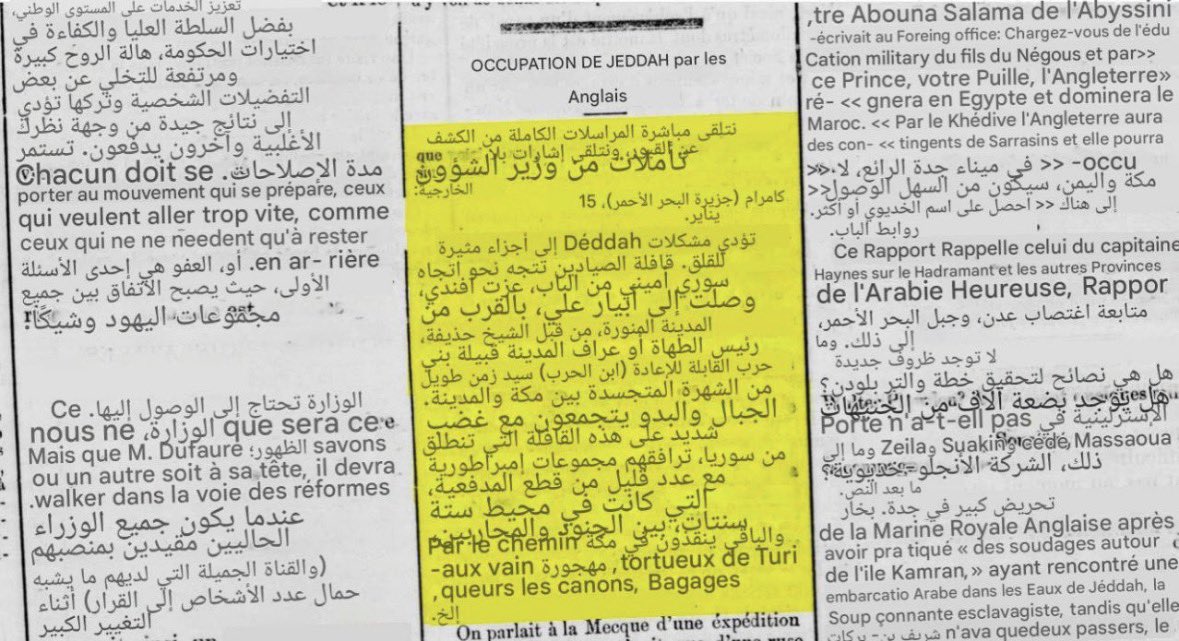 تعزيز الخدمات على المستوى الوطني،
بفضل السلطة العليا والكفاءة في
اختيارات الحكومة، هالة الروح كبيرة
ومرتفعة للتخلي عن بعض
التفضيلات الشخصية وتركها تؤدي
إلى نتائج جيدة من وجهة نظرك
الأغلبية وآخرون يدفعون. تستمر
مدة الإصلاحات. Chacun doit se
porter au mouvement qui se prépare, ceux
qui veulent aller trop vite, comme
ceux qui ne ne needent qu'à rester
en ar- rière. أو، العفو هي إحدى الأسئلة
الأولى، حيث يصبح الاتفاق بين جميع
مجموعات اليهود وشيكًا!
الوزارة تحتاج إلى الوصول إليها. Ce
que sera ce الوزارة، nous ne
savons الظهور؛ Mais que M. Dufaure
ou un autre soit à sa tête, il devra
walker dans la voie des réformes.
عندما يكون جميع الوزراء
الحاليين مقيدين بمنصبهم
(والقناة الجميلة التي لديهم ما يشبه
حمال عدد الأشخاص إلى القرار) أثناء
التغيير الكبير
OCCUPATION DE JEDDAH par les
Anglais
نتلقى مباشرة المراسلات الكاملة من الكشف
عن القبور، ونتلقى إشارات بلا
que
تأملات من وزير الشؤون
الخارجية:
كامرام (جزيرة البحر الأحمر)، 15
يناير.
تؤدي مشكلات Déddah إلى أجزاء مثيرة
للقلق. قافلة الصيادين تتجه نحو اتجاه
سوري أميني من الباب، عزت أفندي،
وصلت إلى أبيار علي، بالقرب من
المدينة المنورة، من قبل الشيخ حذيفة،
رئيس الطهاة أو عراف المدينة قبيلة بني
حرب القابلة للإعادة (ابن الحرب) سيد زمن طويل
من الشهرة المتجسدة بين مكة والمدينة.
الجبال والبدو يتجمعون مع غضب
شديد على هذه القافلة التي تنطلق
من سوريا، ترافقهم مجموعات إمبراطورية
مع عدد قليل من قطع المدفعية،
التي كانت في محيط ستة
سنتات، بين الجنود والمحاربين.
والباقي ينقذون في مكة Par le chemin
tortueux de Turi, مهجورة aux vain-
queurs les canons, Bagages,
إلخ.
On parlait à la Mecque d'une éxpédition
tre Abouna Salama de l'Abyssini,
écrivait au Foreing office: Chargez-vous de l'édu-
Cation military du fils du Négous et par>>
ce Prince, votre Puille, l'Angleterre»
ré- << gnera en Egypte et dominera le
Maroc. << Par le Khédive l'Angleterre aura
des con- << tingents de Sarrasins et elle pourra
occu- << في ميناء جدة الرائع، لا،«»
مكة واليمن، سيكون من السهل الوصول<<
إلى هناك << احصل على اسم الخديوي أو أكثر.
روابط الباب.
Ce Rapport Rappelle celui du capitaine
Haynes sur le Hadramant et les autres Provinces
de l'Arabie Heureuse, Rappor
متابعة اغتصاب عدن، وجبل البحر الأحمر،
إلى ذلك. وما
لا توجد ظروف جديدة
هل هي نصائح لتحقيق خطة والتر بلودن؟
هل يوجد بضعة آلاف من الجنيهات
الإسترلينية في Porte n'a-t-ell pas
cédé, Massaoua وSuakin وZeila وما إلى
ذلك، الشركة الأنجلو-خديوية؟
ما بعد النص.
تحريض كبير في جدة. بخار
de la Marine Royale Anglaise après
avoir pra tiqué « des soudages autour
de l'ile Kamran, » ayant rencontré une
embarcatio Arabe dans les Eaux de Jéddah, la
Soup çonnante esclavagiste, tandis qu'elle
n'ava quedeux passers, le شريف بن - بركات